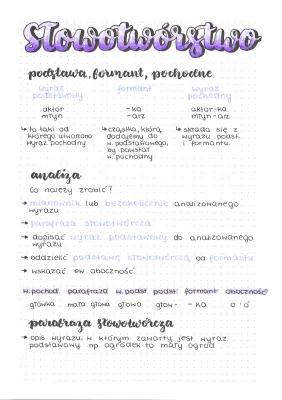 Słowotwórstwo
podstawa, formant, pochodne
wyraz podstawowy
formant
wyraz pochodny
aktor
młyn
-ka
-arz
aktor-ka
młyn-arz
↳ to taki od
którego utworzono
wyraz pochodny
↳ cząstka, którą
dodajemy do
w. podstawowego,
by powstał
w. pochodny
↳ składa się z
wyrazu podst.
i formantu.
analiza
Co należy zrobić?
→ mianownik lub bezokolicznik analizowanego
wyrazu
→ parafraza słowotwórcza
→ dopisać wyraz podstawowy do analizowanego
wyrazu
→ oddzielić podstawę słowotwórczą od formantu
→ wskazać ew. oboczność
w. pochod. parafraza w. podst. podst. formant oboczność
główka mała głowa głowa głow- -ka o : ó
parafraza słowotwórcza
→ opis wyrazu, w którym zawarty jest wyraz
podstawowy np. ogródek to mały ogród